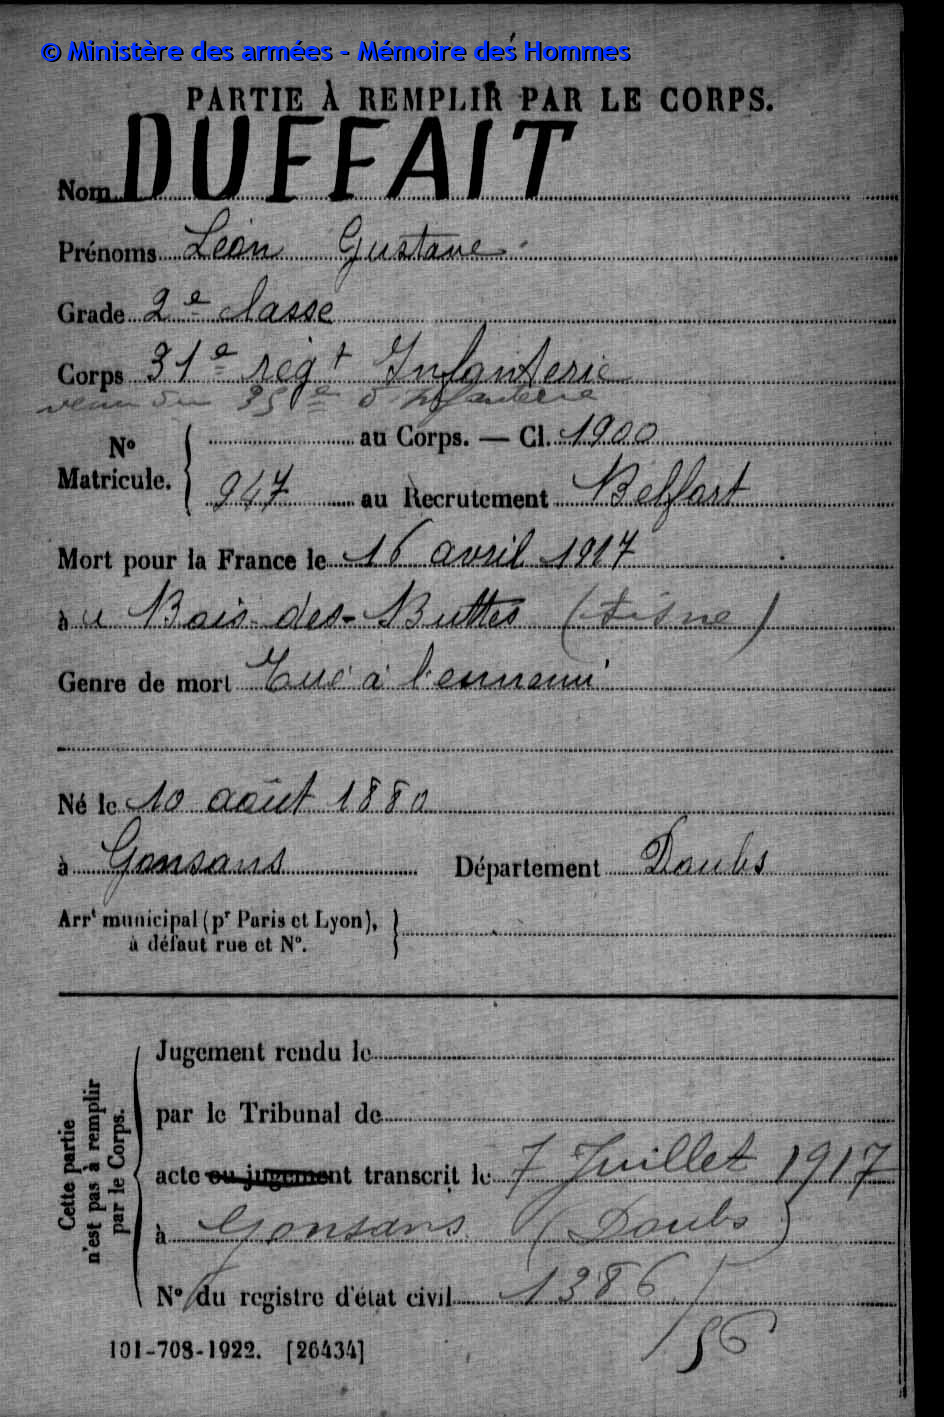 © Ministère des armées - Mémoire des Hommes
PARTIE À REMPLIR PAR LE CORPS.
Nom DUFFAIT
Prénoms Léon Gustave
Grade 2e classe
Corps 31e régt Infanterie
venu du 35e d'Infanterie
No Matricule. { au Corps. — Cl. 1900
947 au Recrutement Belfort
Mort pour la France le 16 avril 1917
à u Bois-des-Buttes (Aisne)
Genre de mort Tué à l'ennemi
Né le 10 août 1880
à Gonsans Département Doubs
Arrt municipal (pr Paris et Lyon),
à défaut rue et No.
Cette partie
n'est pas à remplir
par le Corps.
Jugement rendu le
par le Tribunal de
acte ou jugement transcrit le 7 Juillet 1917
à Gonsans (Doubs)
No du registre d'état civil 1386/
56
101-708-1922. [26434]